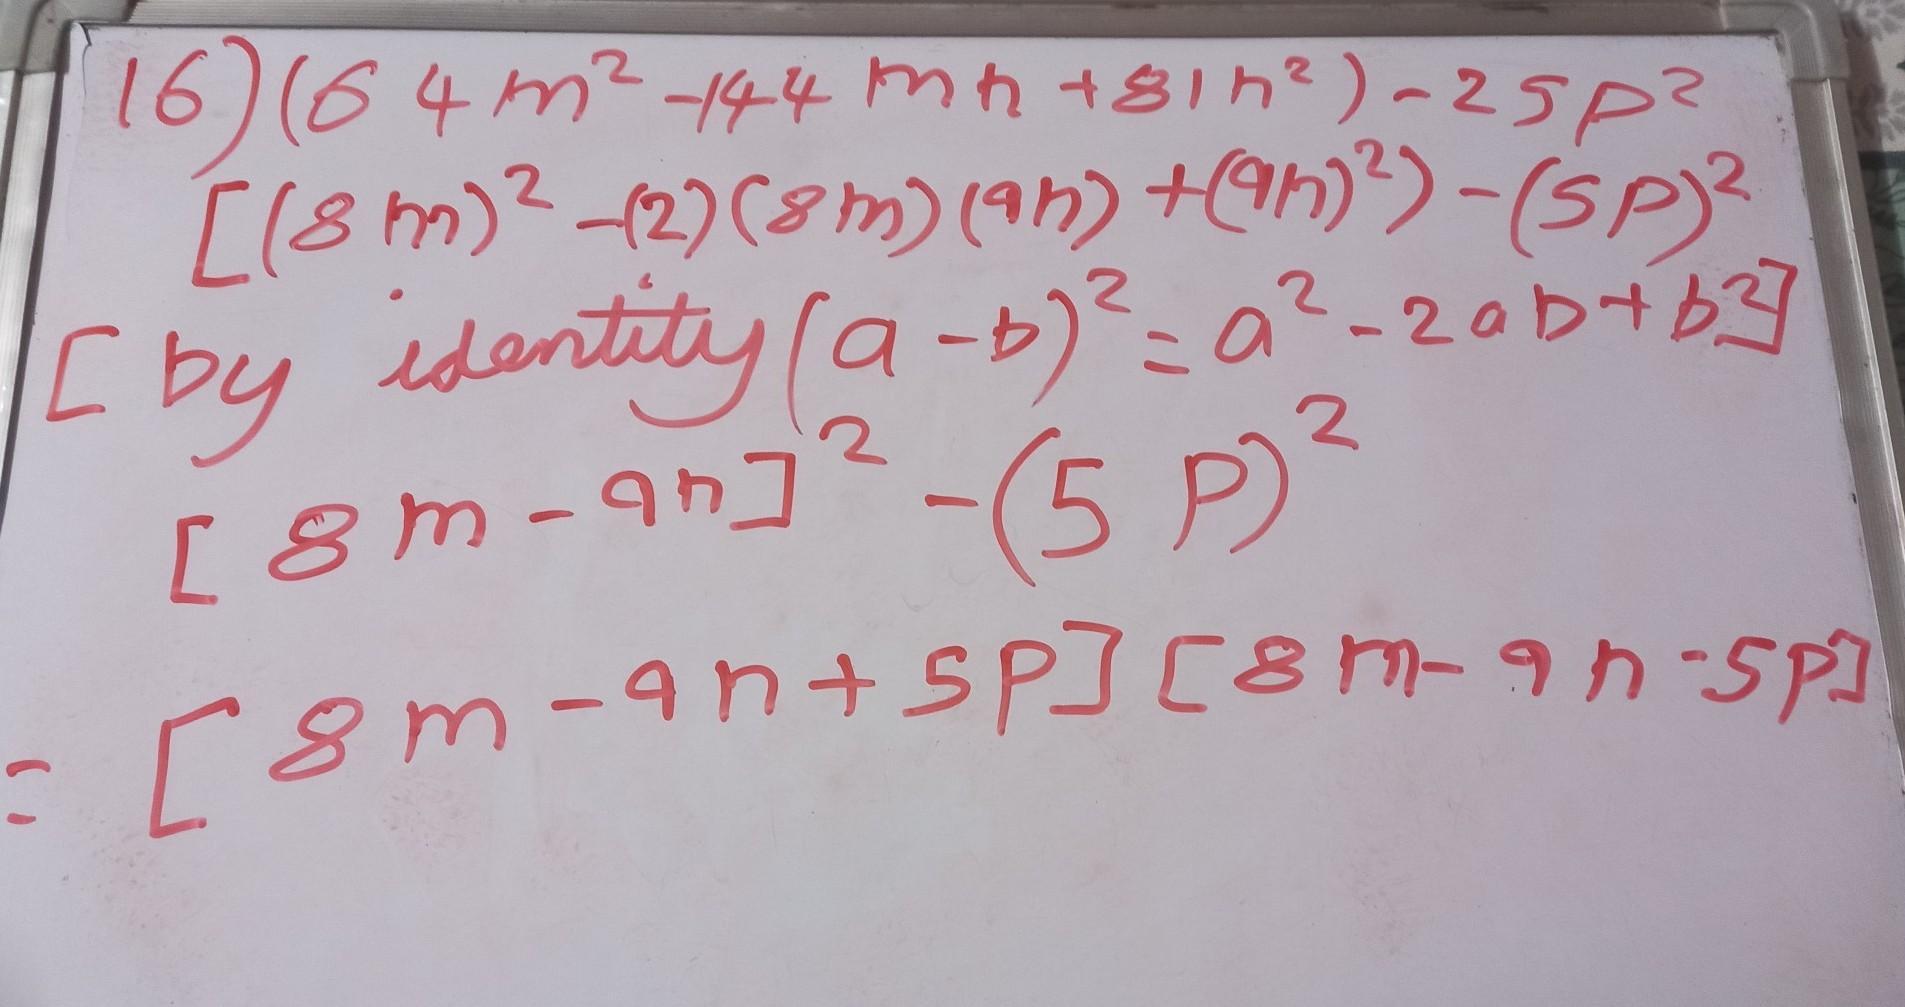 16) (64m² -144mn +81n²) - 25p²
[(8m)² -(2)(8m)(9n) +(9n)²) - (5p)²
[by identity (a-b)² = a² - 2ab + b²]
[8m - 9n]² - (5p)²
= [8m - 9n + 5p] [8m - 9n - 5p]